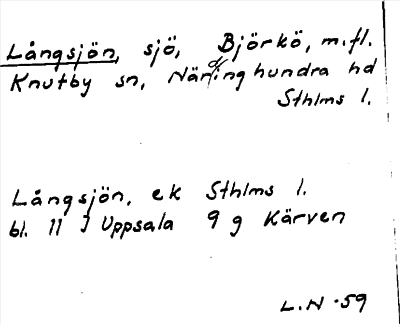 Långsjön, sjö, Björkö, m.fl.
Knutby sn, Närdinghundra hd
Sthlms l.
Långsjön, ek Sthlms l.
bl. 11 J Uppsala 9 g Kärven
L.N -59